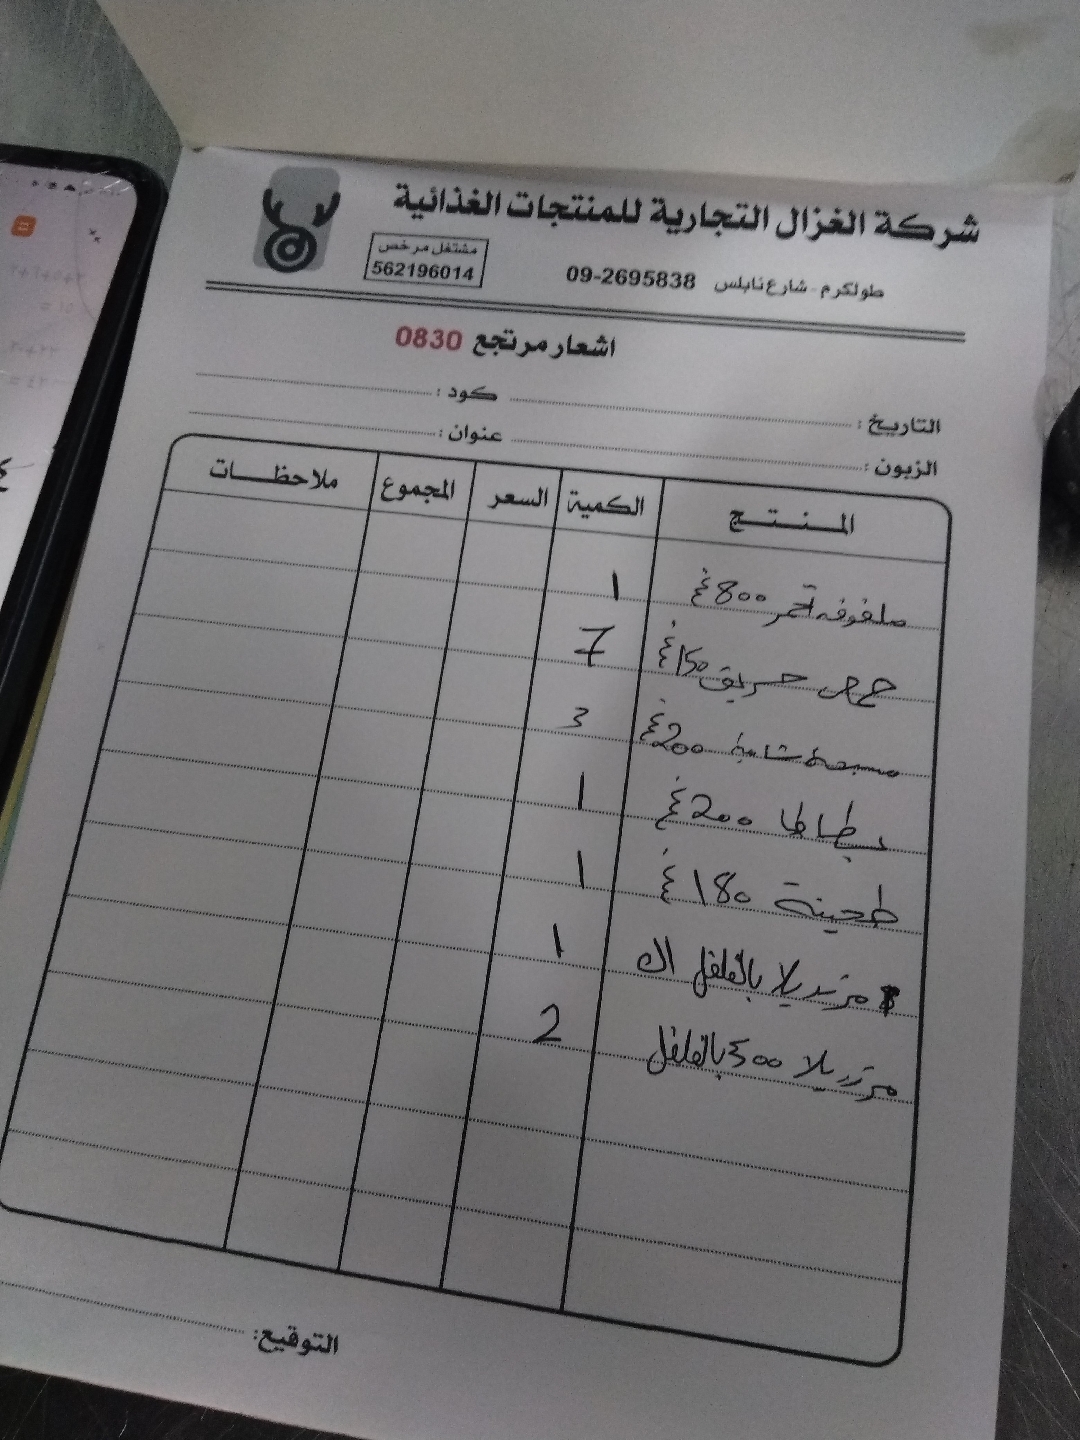 شركة الغزال التجارية للمنتجات الغذائية
طولكرم - شارع نابلس 09-2695838
مشتغل مرخص
562196014
اشعار مرتجع 0830
التاريخ : كود :
الزبون : عنوان :
المنتج الكمية السعر المجموع ملاحظات
ملفوف احمر 800غ 1
حمص حريق 150غ 7
مسبحة شامية 200غ 3
بطاطا 200غ 1
طحينة 180غ 1
مرتديلا بالفلفل 1
مرتديلا 500 بالفلفل 2
التوقيع: